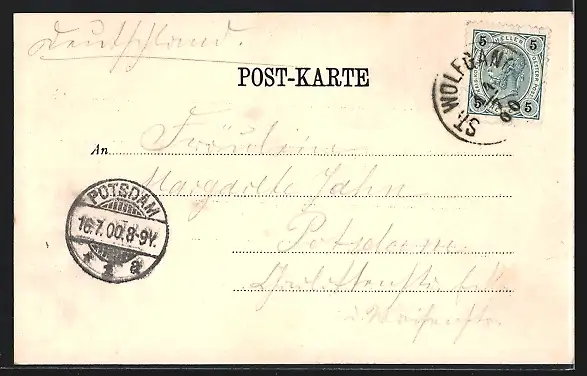 Deutschland.
POST-KARTE
5 HELLER 5
5 5
ST. WOLFGANG
An Fräulein
Margarete Jahn
POTSDAM
16.7.00.8-9V.
* 1 a
Potsdam